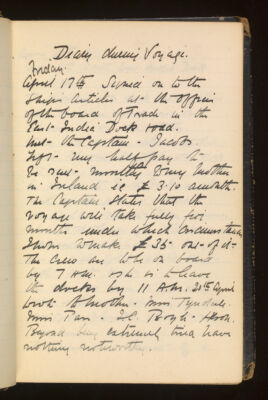 Diary during Voyage.
Friday
April 17th Signed on to the
Ships Articles at the Offices
of the board of Trade in the
East India Dock road.
met the Captain - Jacobs.
Left my half pay to
be sent monthly to my Mother
in Ireland ie £3.10 a month.
The Captain states that the
voyage will take fully five
months under which circumstances
I hope to make £35 out of it
The Crew are to be on board
by 7 A.M. ship is to leave
the docks by 11 A.M. 20th April
wrote to Mother - Miss Tyndall
Miss - Boyle -
Beyond being extremely tired have
nothing noteworthy.